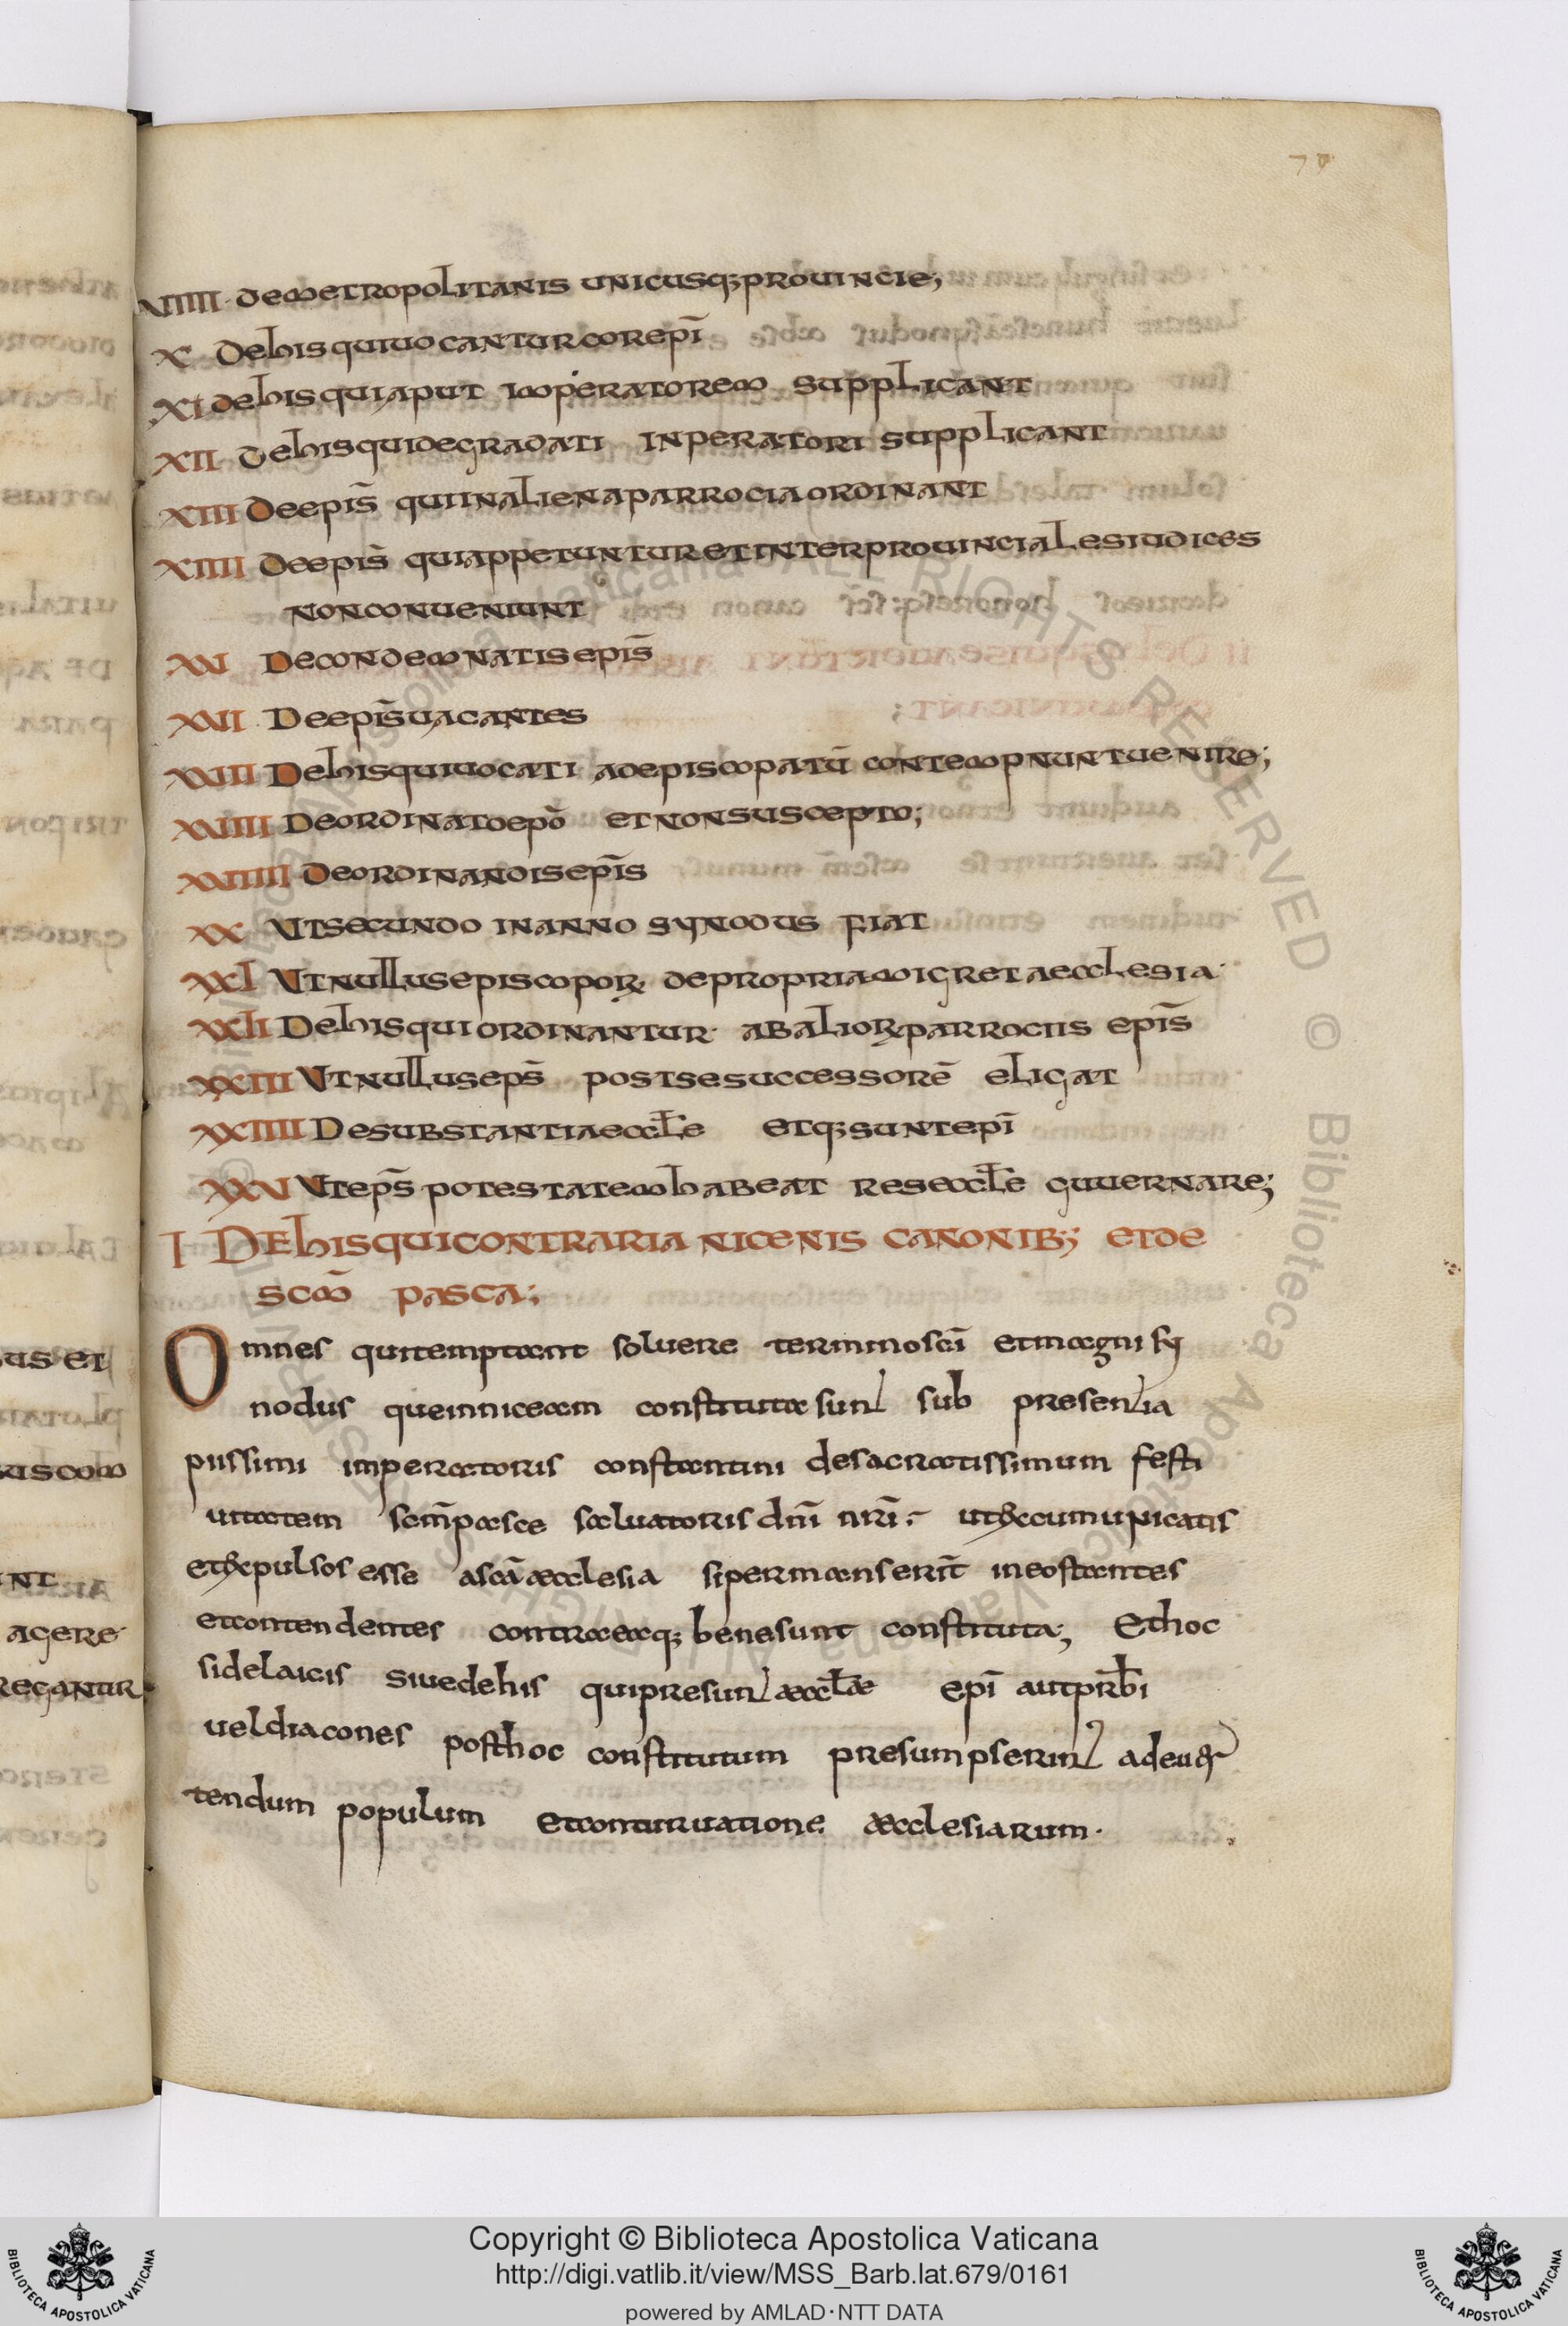 VIIII demetropolitanis unicusq; prouincie;
X Dehis quiuocantur corepī
XI dehis quiaput imperatorem supplicant
XII dehisquidegradati inperatori supplicant
XIII deepis̄ quiinalienaparrociaordinant
XIIII deepis̄ quiappetunturetinterprouincialesiudices
nonconueniunt
XVI Decondemnatisepis̄
XVII Deepis̄uacantes
XVIII Dehisquiuocati adepiscopatū contempnuntuenire;
XVIIII Deordinatoepō etnonsuscepto;
XVIIIII deordinandisepīs
XX Utsecundo inanno synodus fiat
XXI Utnullusepiscoporꝝ depropriamigret aecclesia
XXII Dehisquiordinantur abaliorꝝparrociis epīs
XXIII Utnulluseps̄ postsesuccessorē eligat
XXIIII Desubstantiaeccłe etq;suntepī
XXV Uteps̄ potestatemhabeat reseccłe guuernare;
I Dehisquicontraria nicenis canonib; etde
scm̄ pasca;
Omnes quitemptant soluere terminoscī etmagni sy
nodus queinniceam constituta sunt sub presentia
piissimi imperatoris constantini desacratissimum festi
uitatem scm̄pasce saluatoris dnī nrī. utexcumunicatis
etexpulsos esse ascā æcclesia sipermanserīt ineostantes
etcontendentes contraeaq; benesunt constituta; Ethoc
sidelaicis siuedehis quipresunt æccłæ epī autprb̄i
ueldiacones posthoc constitutum presumpserint adeuer
tendum populum etconturuatione æcclesiarum.
us et
uscom
nt
agere
regantur
Copyright © Biblioteca Apostolica Vaticana
http://digi.vatlib.it/view/MSS_Barb.lat.679/0161
powered by AMLAD·NTT DATA
BIBLIOTECA APOSTOLICA VATICANA
BIBLIOTECA APOSTOLICA VATICANA